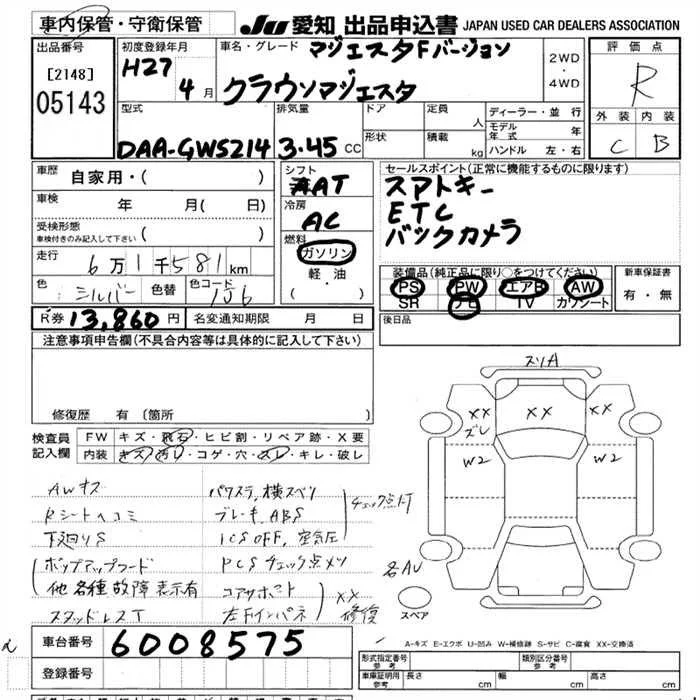 車内保管・守衛保管
JU 愛知 出品申込書 JAPAN USED CAR DEALERS ASSOCIATION
出品番号
[2148]
05143
初度登録年月
H27
4月
車名・グレード マジェスタFバージョン
クラウンマジェスタ
2WD
・
4WD
評価点
R
外装 内装
C B
型式
DAA-GWS214
排気量
3.45 CC
ドア
形状
定員 人
積載 kg
ディーラー・並行
モデル年式 年
ハンドル 左・右
車歴 自家用・( )
車検 年 月( 日)
受検形態
車検付きのみ記入して下さい ( )
走行 6万1千581km
色 シルバー 色替 色コード
シフト
AT
冷房
AC
燃料
ガソリン
・
軽油
( )
セールスポイント(正常に機能するものに限ります)
スマトキー
ETC
バックカメラ
装備品(純正品に限り○をつけてください)
PS PW エアB AW
SR ナビ TV カワシート
新車保証書
有・無
R券 13,860円 名変通知期限 月 日
後日品
注意事項申告欄(不具合内容等は具体的に記入して下さい)
修復歴 有 (箇所
検査員
記入欄
FW キズ・飛石・ヒビ割・リペア跡・X要
内装 キズ・汚レ・コゲ・穴・スレ・キレ・破レ
AWキズ
Rシートヘコミ
下廻りS
ポップアップフード
他各種故障表示有
スタッドレスT
パワステ,横スベリ
ブレーキ,ABS
ICS OFF,空気圧
チェック点灯
PCSチェック点メツ
コアサポート
左Fインパネ
XX
修復
スリA
XX
ズレ
XX
XX
W2
W2
各AU
スペア
A-キズ E-エクボ U-凹み W-補修跡 S-サビ C-腐食 XX-交換済
車台番号 6008575
登録番号
形式指定番号
参考
類別区分番号
参考
車庫証明用
参考
長さ cm 幅 cm 高さ cm